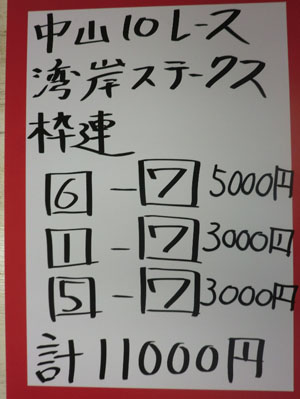 中山10レース
湾岸ステークス
枠連
6-7 5000円
1-7 3000円
5-7 3000円
計11000円